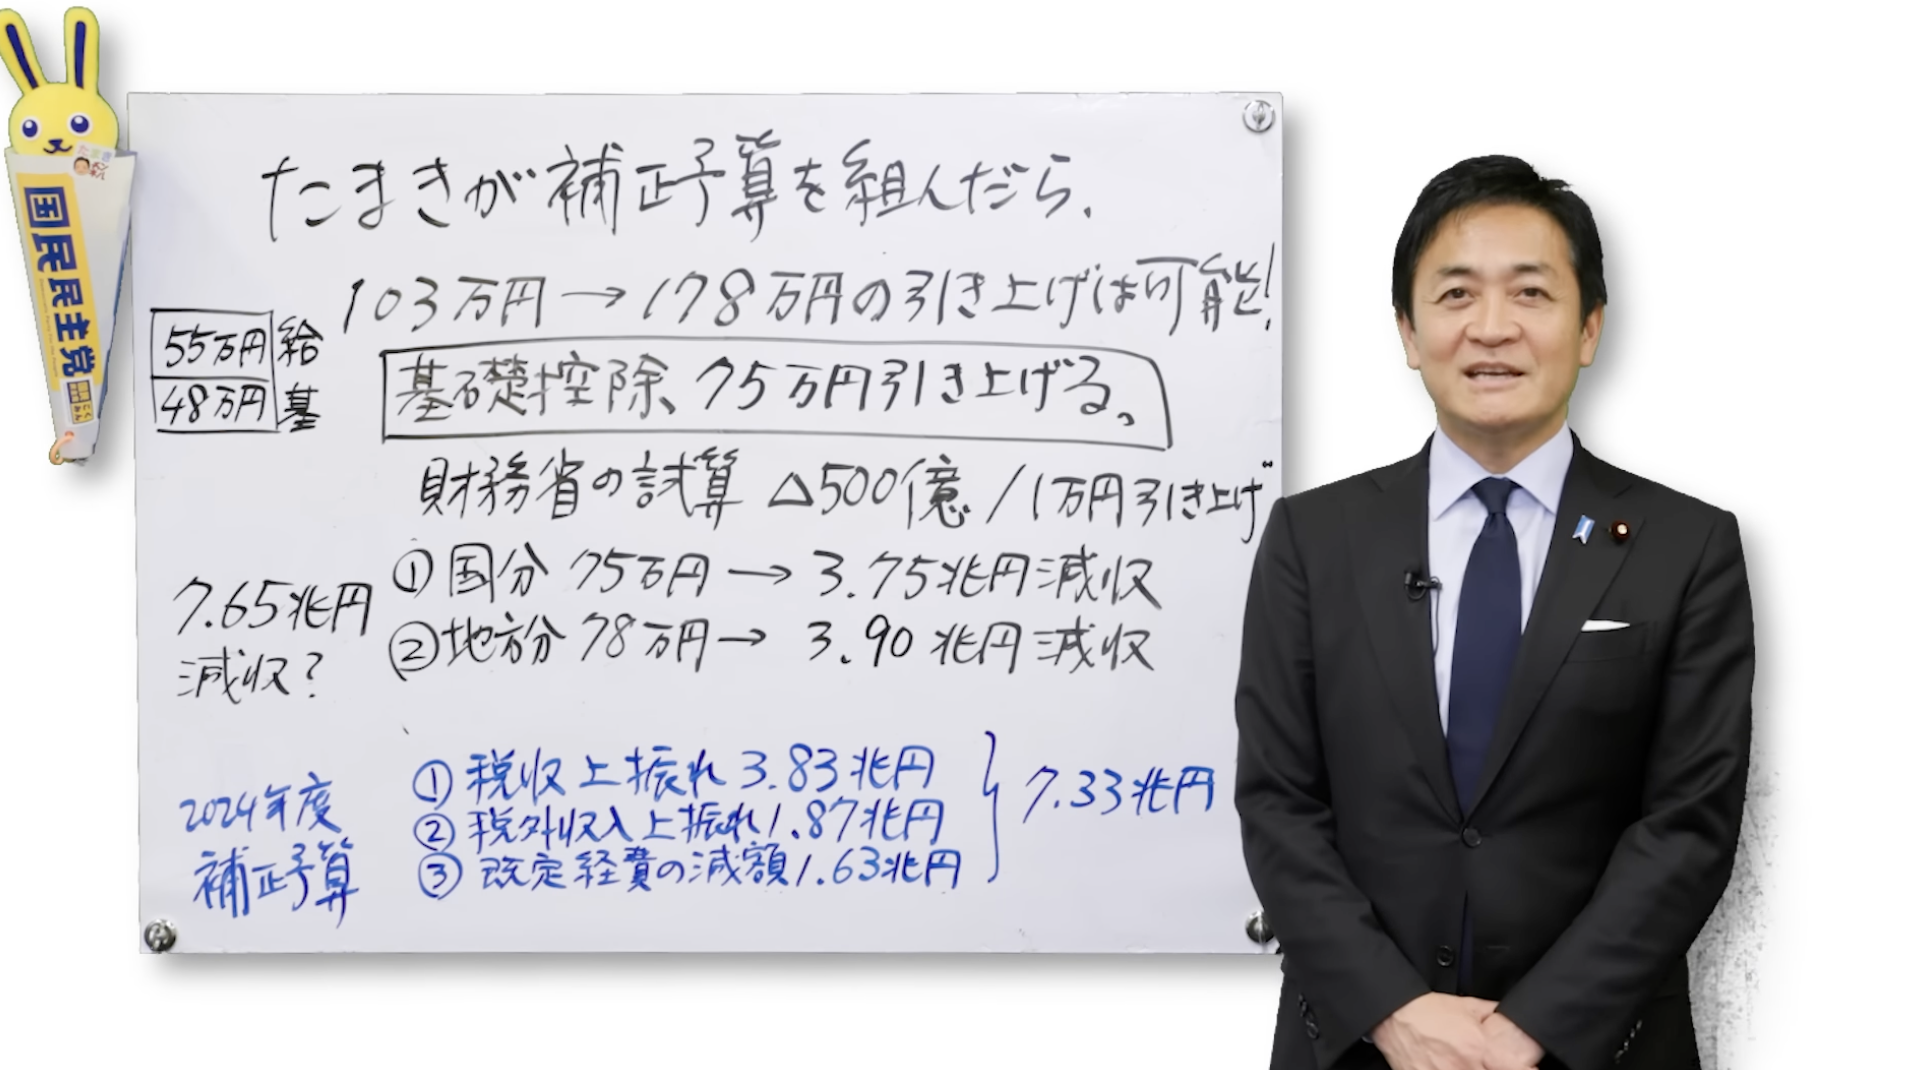 たまき
チャン
ネル
国民民主党
こくみん
たまきが補正予算を組んだら、
103万円→178万円の引き上げは可能!
55万円 給
48万円 基
基礎控除、75万円引き上げる。
財務省の試算 △500億/1万円引き上げ
①国分 75万円→3.75兆円減収
②地方分 78万円→ 3.90兆円減収
7.65兆円
減収?
2024年度
補正予算
①税収上振れ 3.83兆円
②税外収入上振れ1.87兆円
③既定経費の減額1.63兆円
7.33兆円